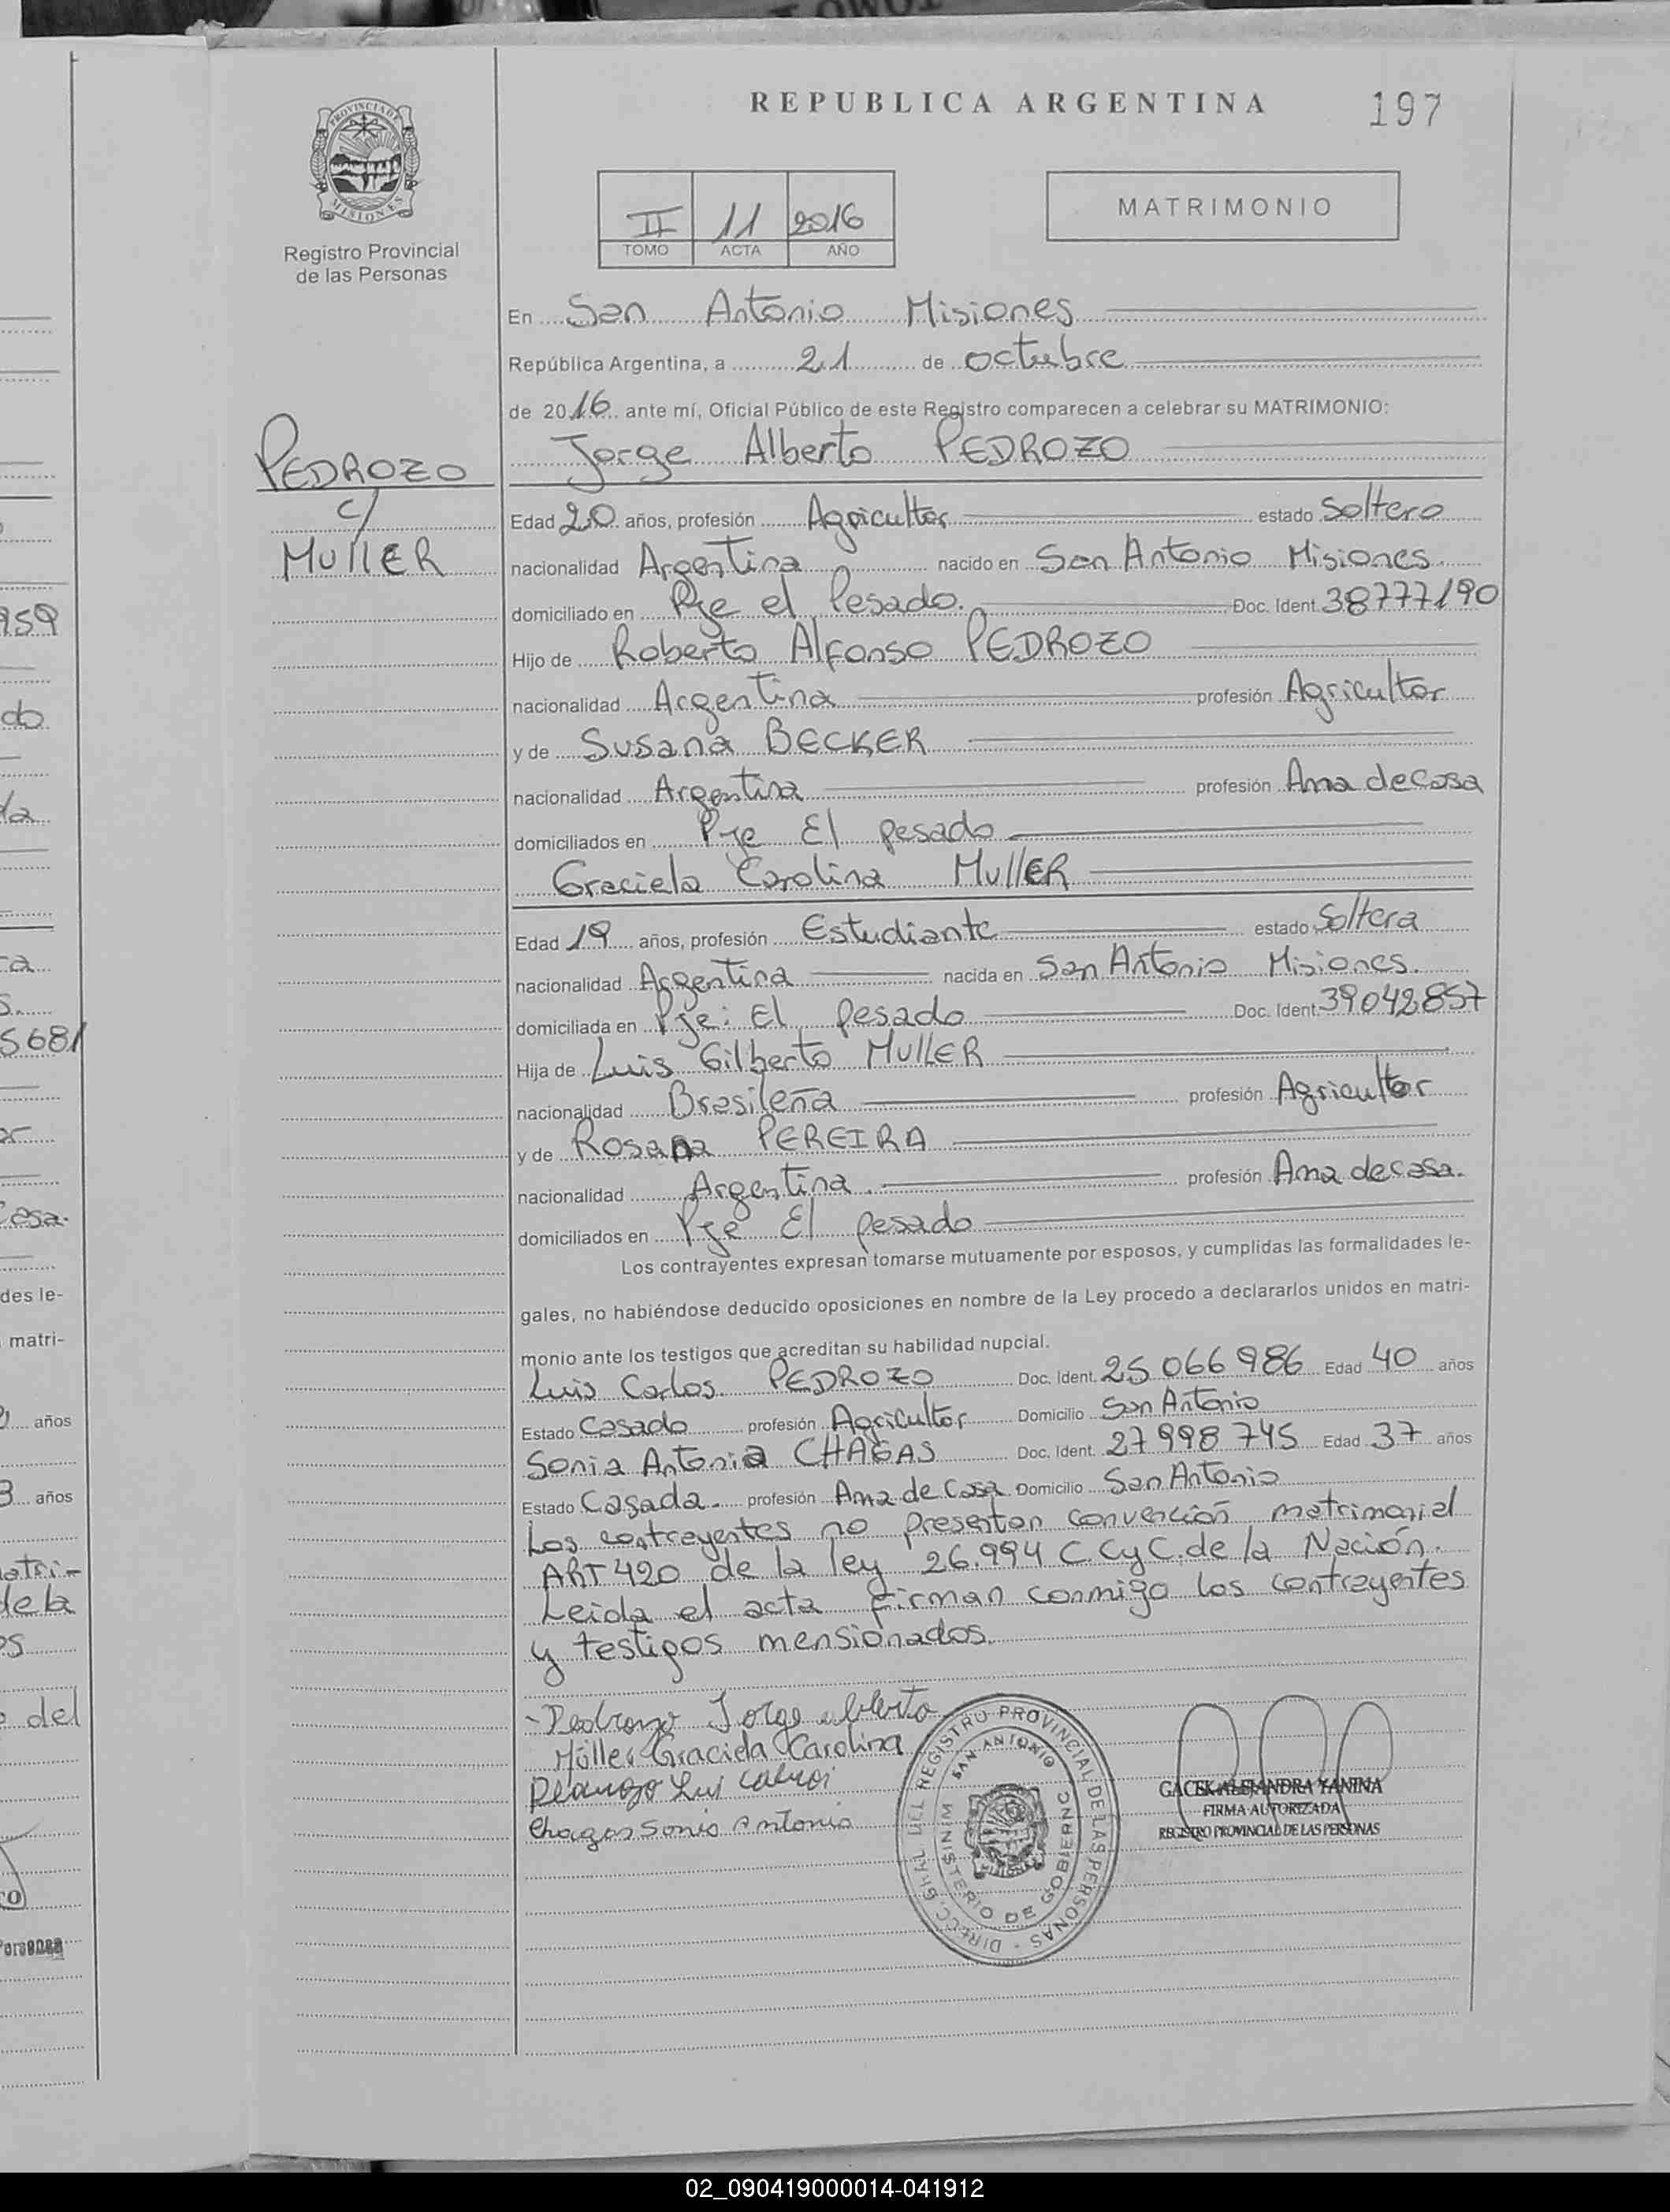 REPUBLICA ARGENTINA
197
PROVINCIA DE
MISIONES
Registro Provincial
de las Personas
II 11 2016
TOMO ACTA AÑO
MATRIMONIO
En San Antonio Misiones
República Argentina, a 21 de octubre
de 2016 ante mí, Oficial Público de este Registro comparecen a celebrar su MATRIMONIO:
PEDROZO
c/
MULLER
Jorge Alberto PEDROZO
Edad 20 años, profesión Agricultor estado Soltero
nacionalidad Argentina nacido en San Antonio Misiones.
domiciliado en Pje el Pesado. Doc. Ident. 38777190
Hijo de Roberto Alfonso PEDROZO
nacionalidad Argentina profesión Agricultor
y de Susana BECKER
nacionalidad Argentina profesión Ama de Casa
domiciliados en Pje El pesado
Graciela Carolina MULLER
Edad 19 años, profesión Estudiante estado Soltera
nacionalidad Argentina nacida en San Antonio Misiones.
domiciliada en Pje: El pesado Doc. Ident. 39042857
Hija de Luis Gilberto MULLER
nacionalidad Brasileña profesión Agricultor
y de Rosana PEREIRA
nacionalidad Argentina. profesión Ama de casa.
domiciliados en Pje El pesado
Los contrayentes expresan tomarse mutuamente por esposos, y cumplidas las formalidades le-
gales, no habiéndose deducido oposiciones en nombre de la Ley procedo a declararlos unidos en matri-
monio ante los testigos que acreditan su habilidad nupcial.
Luis Carlos PEDROZO Doc. Ident. 25 066 986 Edad 40 años
Estado Casado profesión Agricultor Domicilio San Antonio
Sonia Antonia CHAGAS Doc. Ident. 27 998 745 Edad 37 años
Estado Casada. profesión Ama de Casa Domicilio San Antonio
Los contrayentes no presentan convención matrimonial
ART 420 de la ley 26.994 C.CyC. de la Nación.
Leida el acta firman conmigo los contrayentes
y testigos mensionados.
- Pedrozo Jorge alberto
Müller Graciela Carolina
Pedrozo Luis Carlos
Chagas Sonia Antonia
DIRECC. GRAL. DEL REGISTRO PROVINCIAL DE LAS PERSONAS
SAN ANTONIO
MINISTERIO DE GOBIERNO
GACEK ALEJANDRA YANINA
FIRMA AUTORIZADA
REGISTRO PROVINCIAL DE LAS PERSONAS
959
do
da
ra
s.
5681
or
Casa.
des le-
matri-
años
3 años
matri-
de la
os
del
02_090419000014-041912